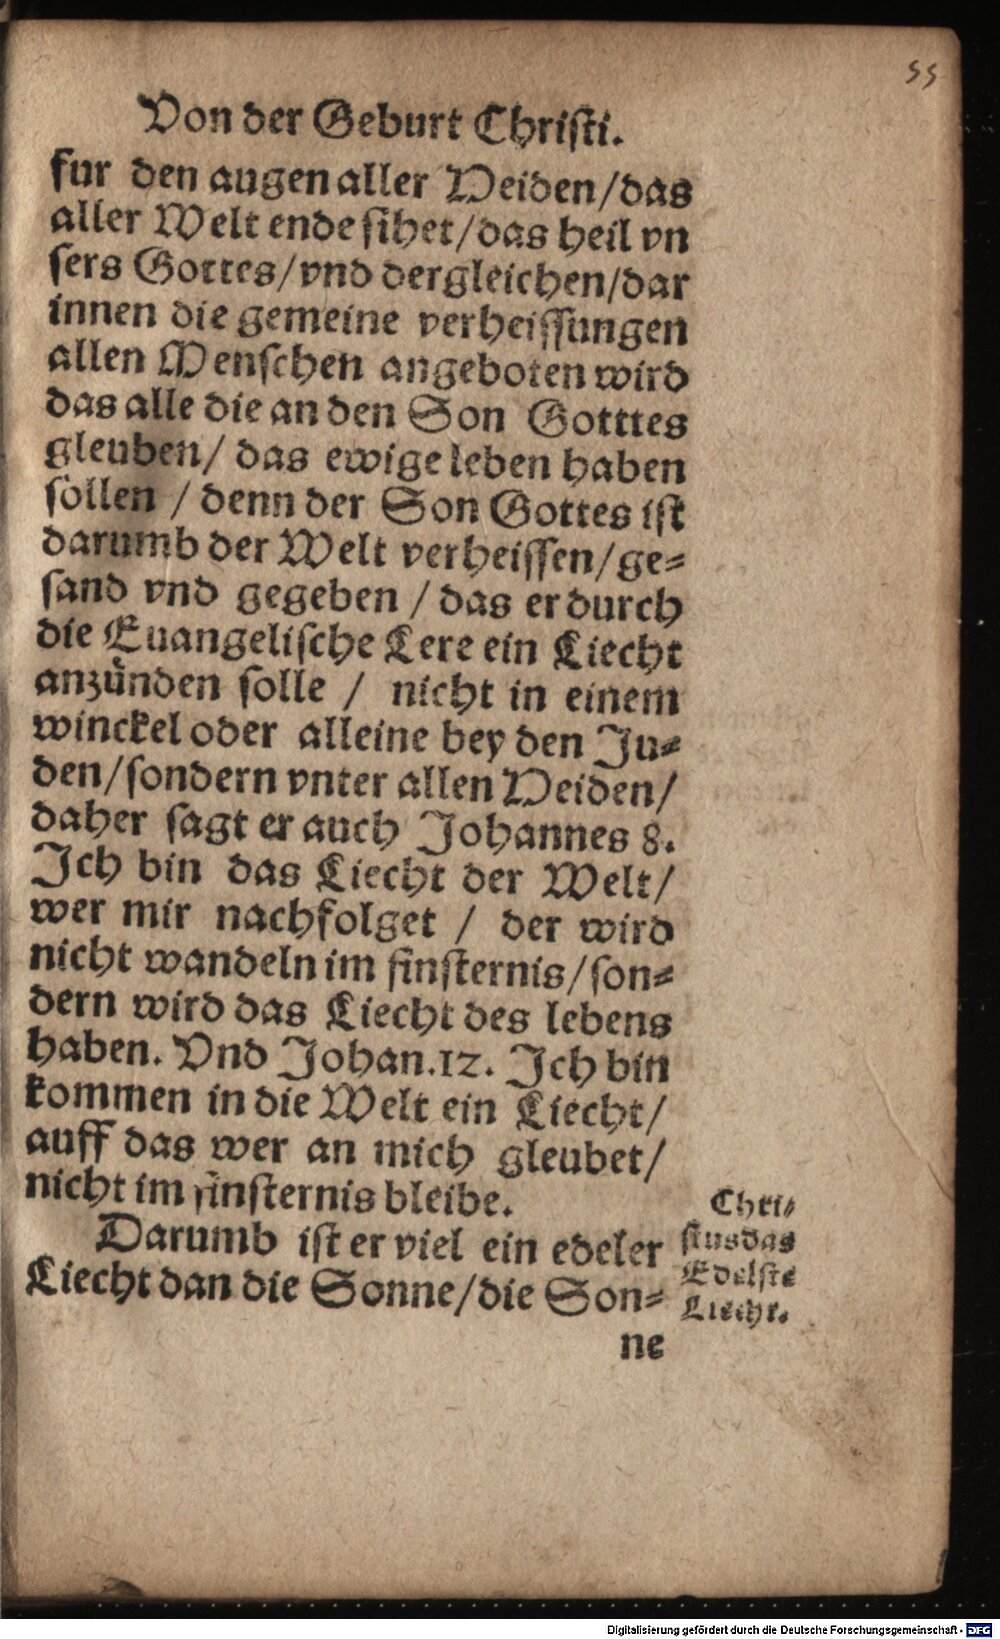 55
Von der Geburt Christi.
fur den augen aller Heiden/das
aller Welt ende sihet/das heil vn
sers Gottes/vnd dergleichen/dar
innen die gemeine verheissungen
allen Menschen angeboten wird
das alle die an den Son Gotttes
gleuben/ das ewige leben haben
sollen / denn der Son Gottes ist
darumb der Welt verheissen/ge=
sand vnd gegeben / das er durch
die Euangelische Lere ein Liecht
anzünden solle / nicht in einem
winckel oder alleine bey den Ju=
den/sondern vnter allen Heiden/
daher sagt er auch Johannes 8.
Ich bin das Liecht der Welt/
wer mir nachfolget / der wird
nicht wandeln im finsternis/son=
dern wird das Liecht des lebens
haben. Vnd Johan.12. Ich bin
kommen in die Welt ein Liecht/
auff das wer an mich gleubet/
nicht im finsternis bleibe.
Darumb ist er viel ein edeler
Liecht dan die Sonne/die Son=
ne
Chri=
stus das
Edelste
Liecht.
Digitalisierung gefördert durch die Deutsche Forschungsgemeinschaft - DFG